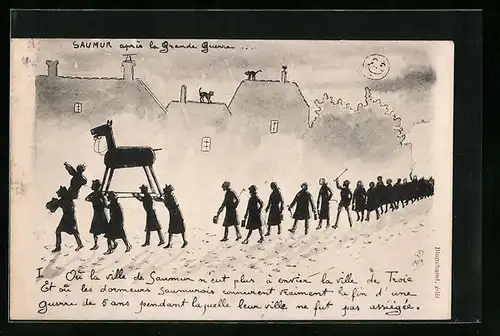 SAUMUR après la Grande Guerre ...
I Où la ville de Saumur n'eut plus à envier la ville de Troie
Et où les dormeurs Saumurois connurent vraiment la fin d'une
guerre de 5 ans pendant laquelle leur ville ne fut pas assiégée.
Blanchaud, édit